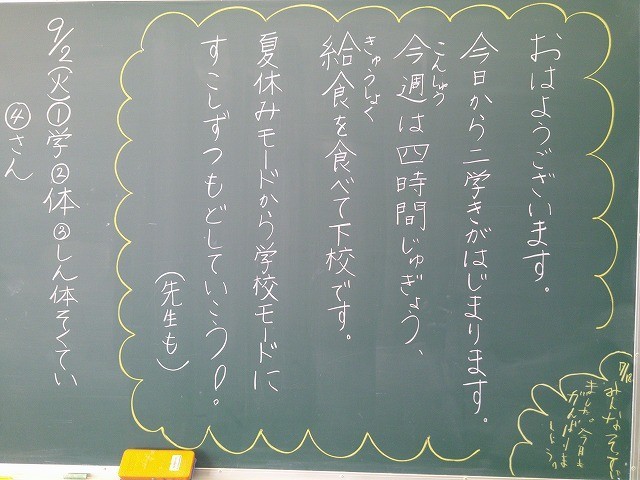 おはようございます。
今日から二学きがはじまります。
今週は四時間じゅぎょう、
こんしゅう
給食を食べて下校です。
きゅうしょく
夏休みモードから学校モードに
すこしずつもどしていこう!。
(先生も)
9/2(火)①学②体③しん体そくてい
④さん
7/18
みんなそ
ました。今月も
がんばりま
しょう。